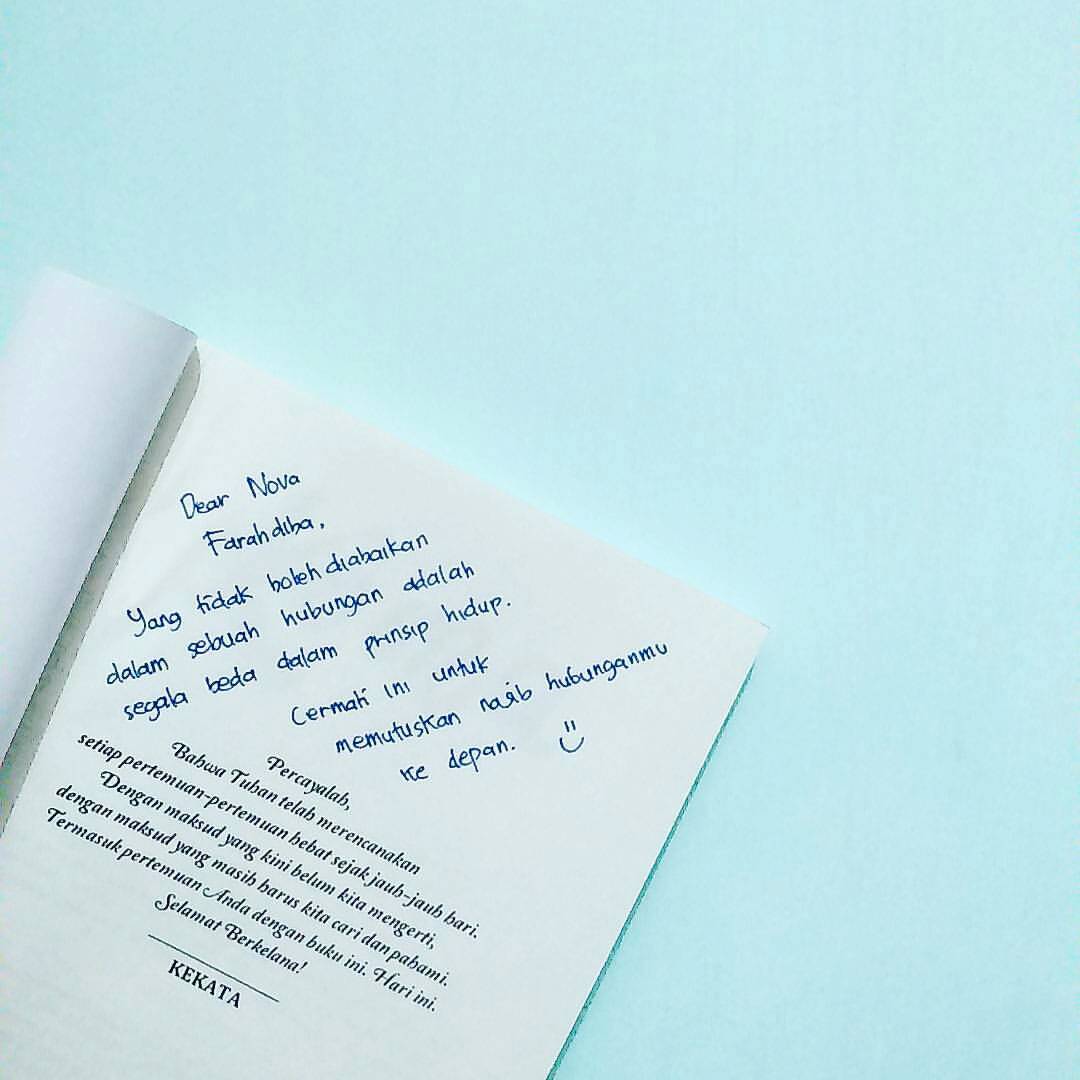 Dear Nova
Farahdiba,
Yang tidak boleh diabaikan
dalam sebuah hubungan adalah
segala beda dalam prinsip hidup.
Cermati ini untuk
memutuskan nasib hubunganmu
ke depan. :)
Percayalah,
Bahwa Tuhan telah merencanakan
setiap pertemuan-pertemuan hebat sejak jauh-jauh hari.
Dengan maksud yang kini belum kita mengerti,
dengan maksud yang masih harus kita cari dan pahami.
Termasuk pertemuan Anda dengan buku ini. Hari ini.
Selamat Berkelana!
KEKATA